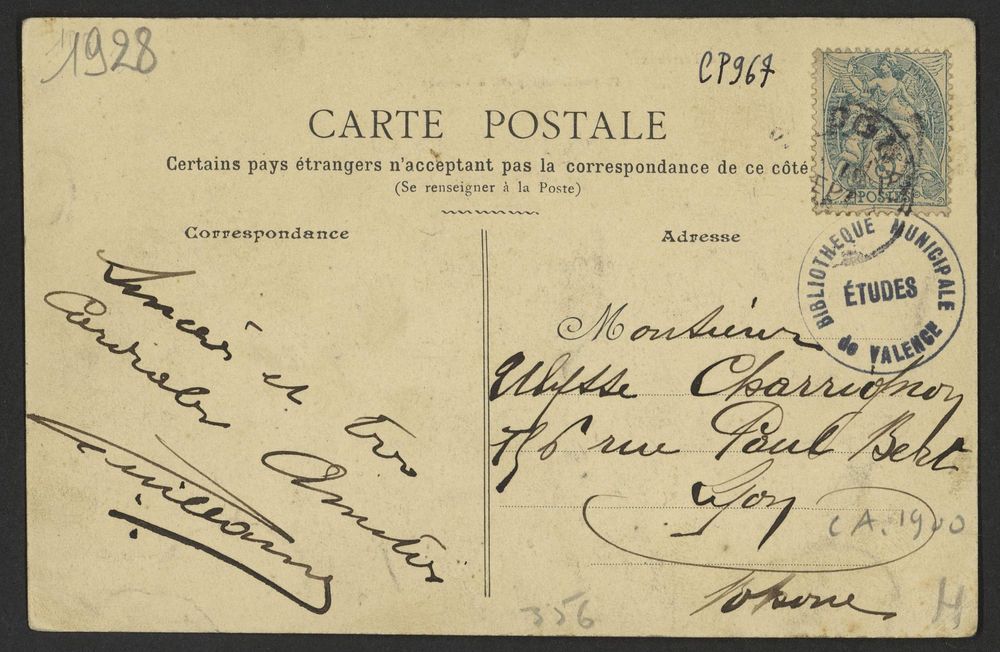 1928
CP967
CARTE POSTALE
Certains pays étrangers n'acceptant pas la correspondance de ce côté
(Se renseigner à la Poste)
Correspondance
Adresse
POSTES
BIBLIOTHEQUE MUNICIPALE
ÉTUDES
de VALENCE
et très
Cordiales Amitiés
Monsieur
Ulysse Charrignon
156 rue Paul Bert
Lyon
CA. 1900
Rhone
356
H